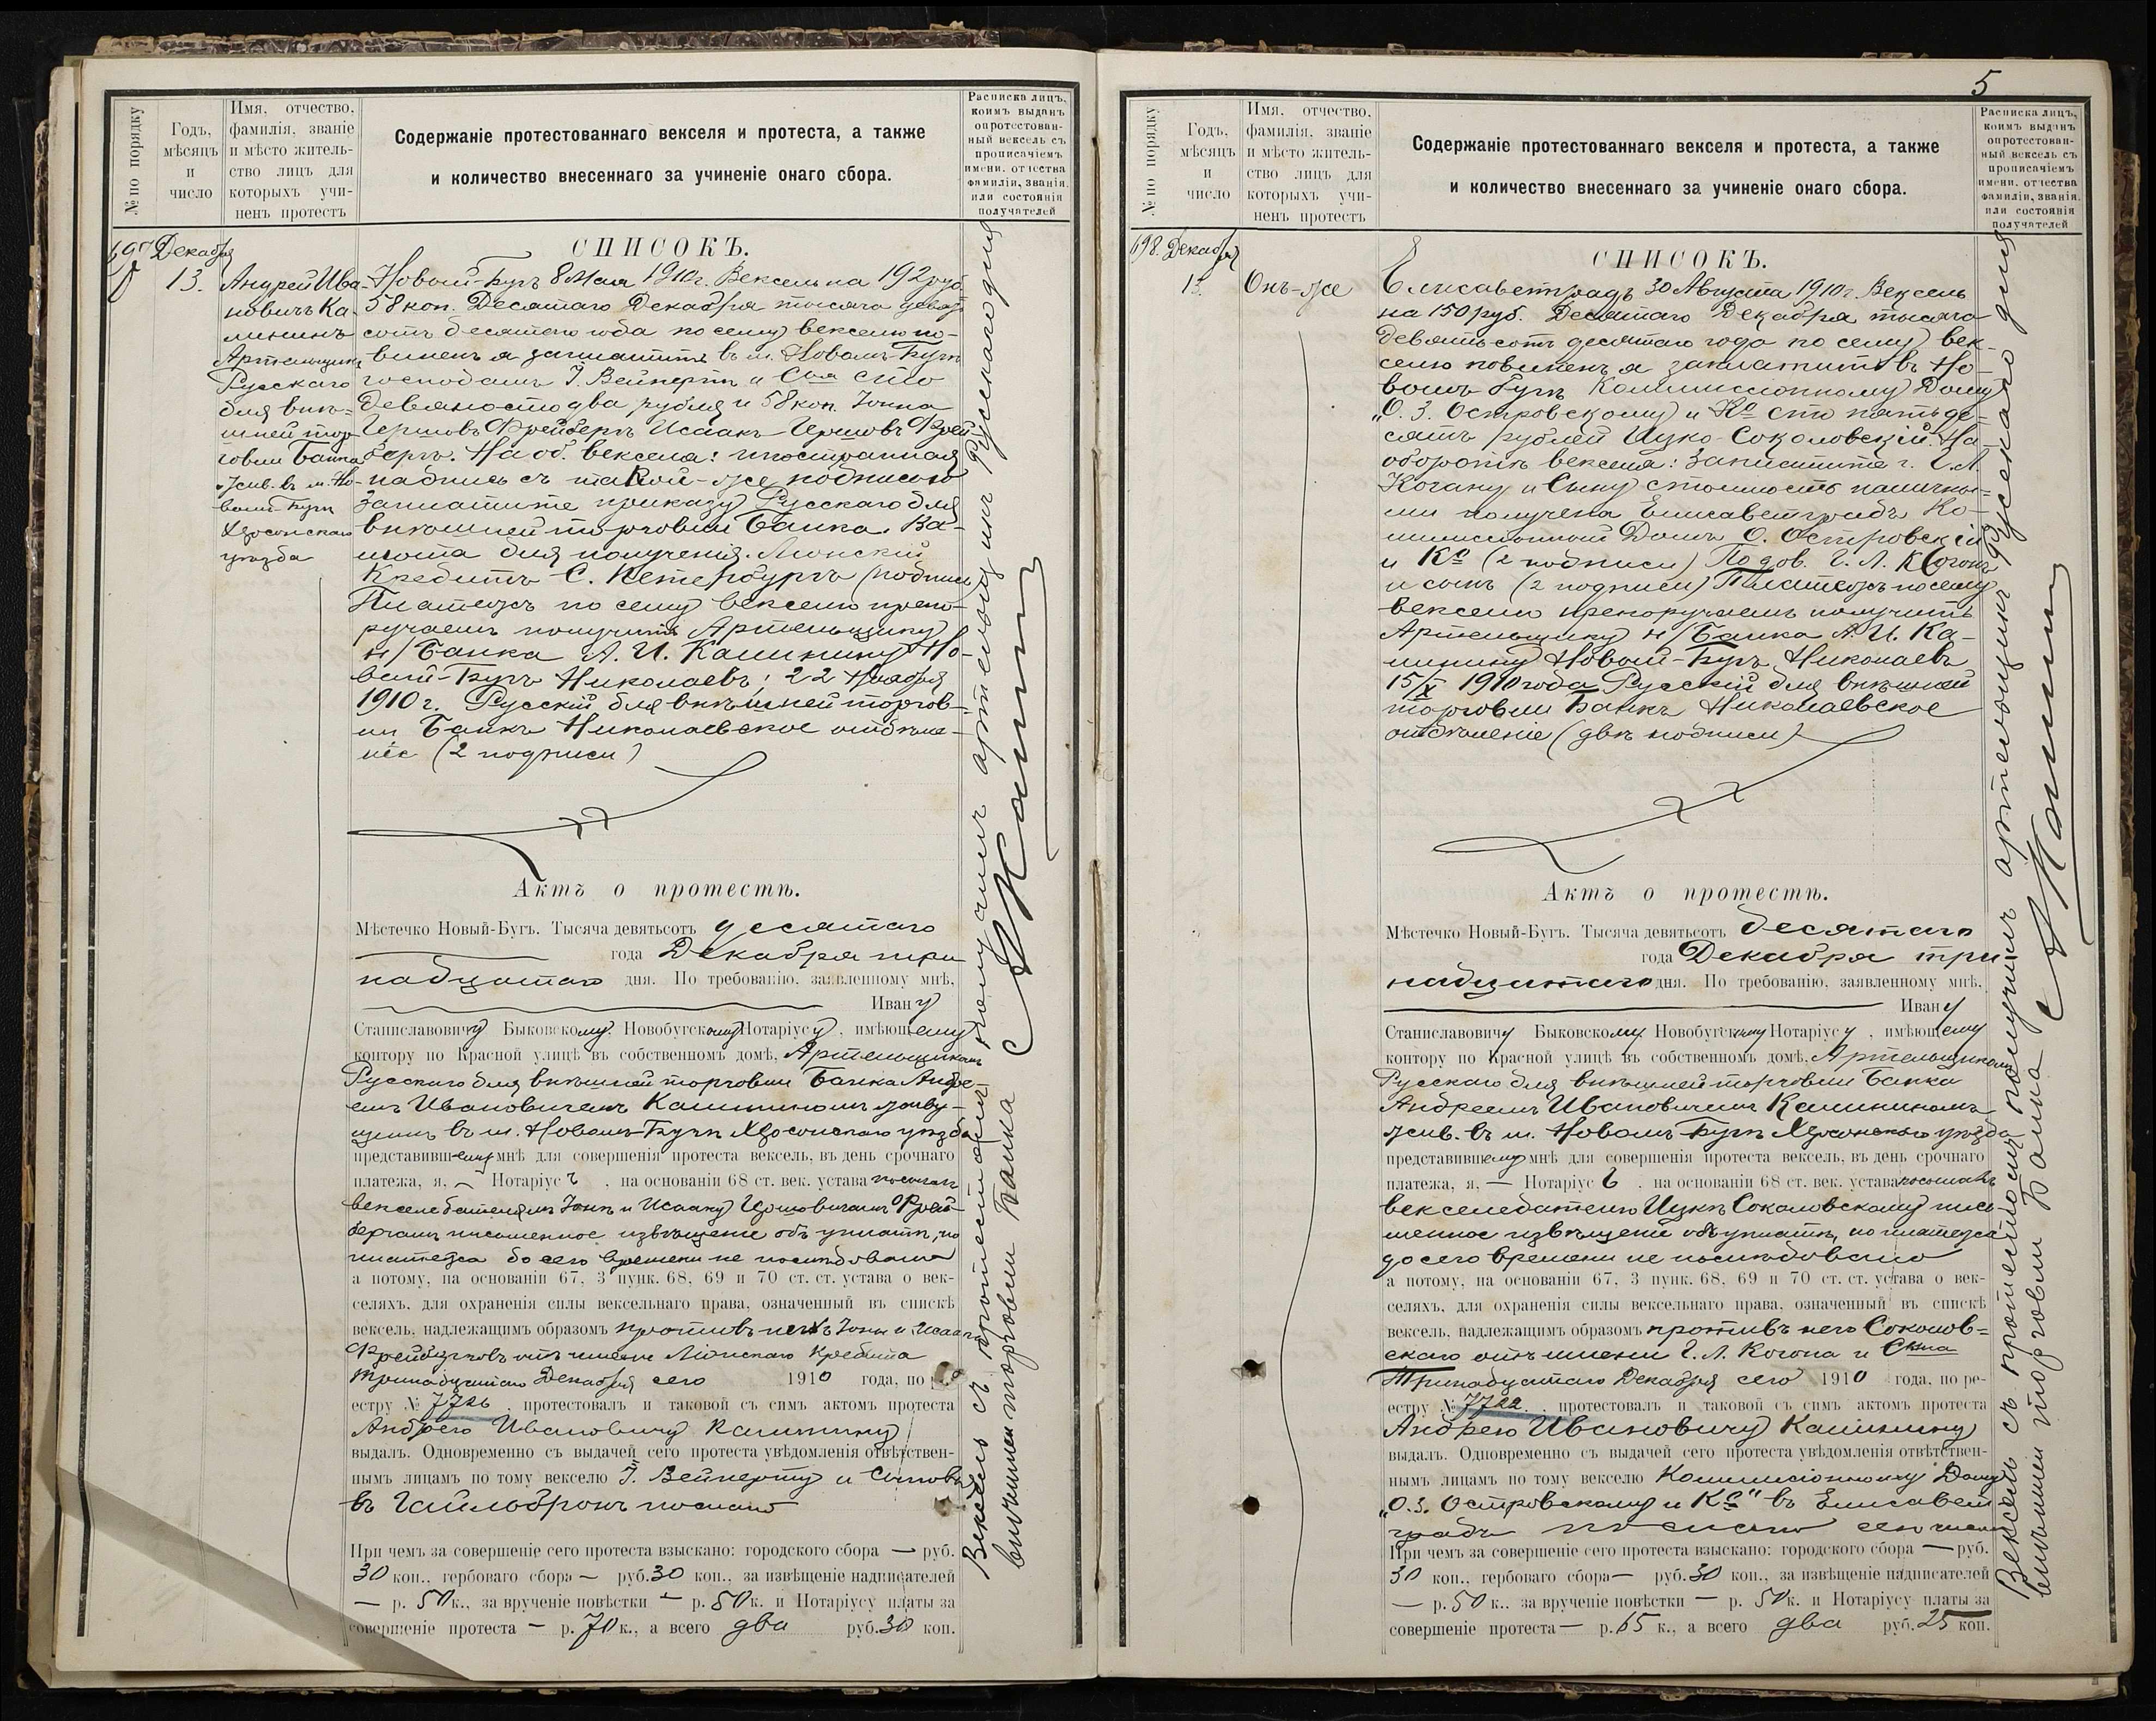 № по порядку
Годъ,
мѣсяцъ
и
число
Имя, отчество,
фамилія, званіе
и мѣсто житель-
ство лицъ для
которыхъ учи-
ненъ протестъ
Содержаніе протестованнаго векселя и протеста, а также
и количество внесеннаго за учиненіе онаго сбора.
Расписка лицъ,
коимъ выданъ
опротестован-
ный вексель съ
прописаніемъ
имени, отчества
фамиліи, званія,
или состоянія
получателей
697 Декабря
13.
Андрей Ива-
новичъ Ка-
лининъ
Артельщикъ
Русскаго
для внѣ-
шней тор-
говли Банка
жив. въ м. Но-
вомъ Бугѣ
Херсонскаго
уѣзда
СПИСОКЪ.
Новый-Бугъ 8 Мая 1910 г. Вексель на 192 руб
58 коп. Десятаго Декабря тысяча девять
сотъ десятаго года по сему векселю по-
виненъ я заплатить въ м. Новомъ-Бугѣ
господамъ І. Вейперть и С-ья сто
девяносто два рубля и 58 коп. Іонна
Гершовъ Фрейбергъ Исаакъ Гершовъ Фрей-
бергъ. На об. векселя: иностранная
надпись съ такой-же подписью
Заплатите приказу Русскаго для
внѣшней торговли Банка. Ва-
люта для полученія. Ліонскій
Кредитъ С. Петербургъ (подпись)
Платежъ по сему векселю препо-
ручаемъ получить Артельщику
н/Банка А. И. Калинину Но-
вый-Бугъ Николаевъ, 22 Ноября
1910 г. Русскій для внѣшней торгов-
ли Банкъ Николаевское отдѣле-
ніе (2 подписи)
Актъ о протестѣ.
Мѣстечко Новый-Бугъ. Тысяча девятьсотъ десятаго
года Декабря три
надцатаго дня. По требованію, заявленному мнѣ,
Ивану
Станиславовичу Быковскому, Новобугскому Нотаріусу, имѣющему
контору по Красной улицѣ въ собственномъ домѣ, Артельщикомъ
Русскаго для внѣшней торговли Банка Андре-
емъ Ивановичемъ Калининымъ живу-
щимъ въ м. Новомъ-Бугѣ Херсонскаго уѣзда
представившему мнѣ для совершенія протеста вексель, въ день срочнаго
платежа, я, — Нотаріусъ, на основаніи 68 ст. век. устава послалъ
векселедателямъ Іонѣ и Исааку Гершовичамъ Фрей-
бергамъ письменное извѣщеніе объ уплатѣ, но
платежа до сего времени не послѣдовало
а потому, на основаніи 67, 3 пунк. 68, 69 и 70 ст. ст. устава о век-
селяхъ, для охраненія силы вексельнаго права, означенный въ спискѣ
вексель, надлежащимъ образомъ противъ нихъ Іоны и Исаака
Фрейберговъ отъ имени Ліонскаго Кредита
Тринадцатаго Декабря сего 1910 года, по ре
естру № 7726, протестовалъ и таковой съ симъ актомъ протеста
Андрею Ивановичу Калинину
выдалъ. Одновременно съ выдачей сего протеста увѣдомленія отвѣтствен-
нымъ лицамъ по тому векселю І. Вейперту и Сыновья
въ Гайльбронъ послано
При чемъ за совершеніе сего протеста взыскано: городского сбора — руб.
30 коп., гербоваго сбора — руб. 30 коп., за извѣщеніе надписателей
— р. 50 к., за врученіе повѣстки — р. 50 к. и Нотаріусу платы за
совершеніе протеста — р. 70 к., а всего два руб. 30 коп.
Вексель съ протестомъ получилъ артельщикъ Русскаго для
внѣшней торговли Банка АКалин
5
№ по порядку
Годъ,
мѣсяцъ
и
число
Имя, отчество,
фамилія, званіе
и мѣсто житель-
ство лицъ для
которыхъ учи-
ненъ протестъ
Содержаніе протестованнаго векселя и протеста, а также
и количество внесеннаго за учиненіе онаго сбора.
Расписка лицъ,
коимъ выданъ
опротестован-
ный вексель съ
прописаніемъ
имени, отчества
фамиліи, званія,
или состоянія
получателей
698. Декабря
13.
Онъ-же
СПИСОКЪ.
Елисаветградъ 30 Августа 1910 г. Вексель
на 150 руб. Десятаго Декабря тысяча
девятьсотъ десятаго года по сему век-
селю повиненъ я заплатить въ Но-
вомъ Бугѣ Коммиссіонному Дому
„О. З. Островскому и Ко сто пятьде-
сятъ рублей Ицко Соколовскій. На
оборотѣ векселя: Заплатите г. Г. Л.
Когану и Сыну стоимость наличны-
ми получена Елисаветградъ Ко-
миссіонный Домъ О. Островскій
и Ко (2 подписи) По дов. Г. Л. Когонъ
и сынъ (2 подписи) Платежъ по сему
векселю препоручаемъ получить
Артельщику н/Банка А. И. Ка-
линину Новый-Бугъ, Николаевъ
15/X 1910 года Русскій для внѣшней
торговли Банкъ Николаевское
отдѣленіе (двѣ подписи)
Актъ о протестѣ.
Мѣстечко Новый-Бугъ. Тысяча девятьсотъ десятаго
года Декабря три
надцатаго дня. По требованію, заявленному мнѣ,
Ивану
Станиславовичу Быковскому, Новобугскому Нотаріусу, имѣющему
контору по Красной улицѣ въ собственномъ домѣ, Артельщикомъ
Русскаго для внѣшней торговли Банка
Андреемъ Ивановичемъ Калининымъ
жив. въ м. Новомъ-Бугѣ Херсонскаго уѣзда
представившему мнѣ для совершенія протеста вексель, въ день срочнаго
платежа, я, — Нотаріусъ, на основаніи 68 ст. век. устава послалъ
векселедателю Ицкѣ Соколовскому пись-
менное извѣщеніе объ уплатѣ, но платежа
до сего времени не послѣдовало
а потому, на основаніи 67, 3 пунк. 68, 69 и 70 ст. ст. устава о век-
селяхъ, для охраненія силы вексельнаго права, означенный въ спискѣ
вексель, надлежащимъ образомъ противъ него Соколов-
скаго отъ имени Г. Л. Когона и Сына
Тринадцатаго Декабря сего 1910 года, по ре-
естру № 7722, протестовалъ и таковой съ симъ актомъ протеста
Андрею Ивановичу Калинину
выдалъ. Одновременно съ выдачей сего протеста увѣдомленія отвѣтствен-
нымъ лицамъ по тому векселю Коммиссіонному Дому
„О. З. Островскому и Ко" въ Елисавет
градъ послано сего числа
При чемъ за совершеніе сего протеста взыскано: городского сбора — руб.
30 коп., гербоваго сбора — руб. 30 коп., за извѣщеніе надписателей
— р. 50 к., за врученіе повѣстки — р. 50 к. и Нотаріусу платы за
совершеніе протеста — р. 65 к., а всего два руб. 25 коп.
Вексель съ протестомъ получилъ артельщикъ Русскаго для
внѣшней торговли Банка АКалин